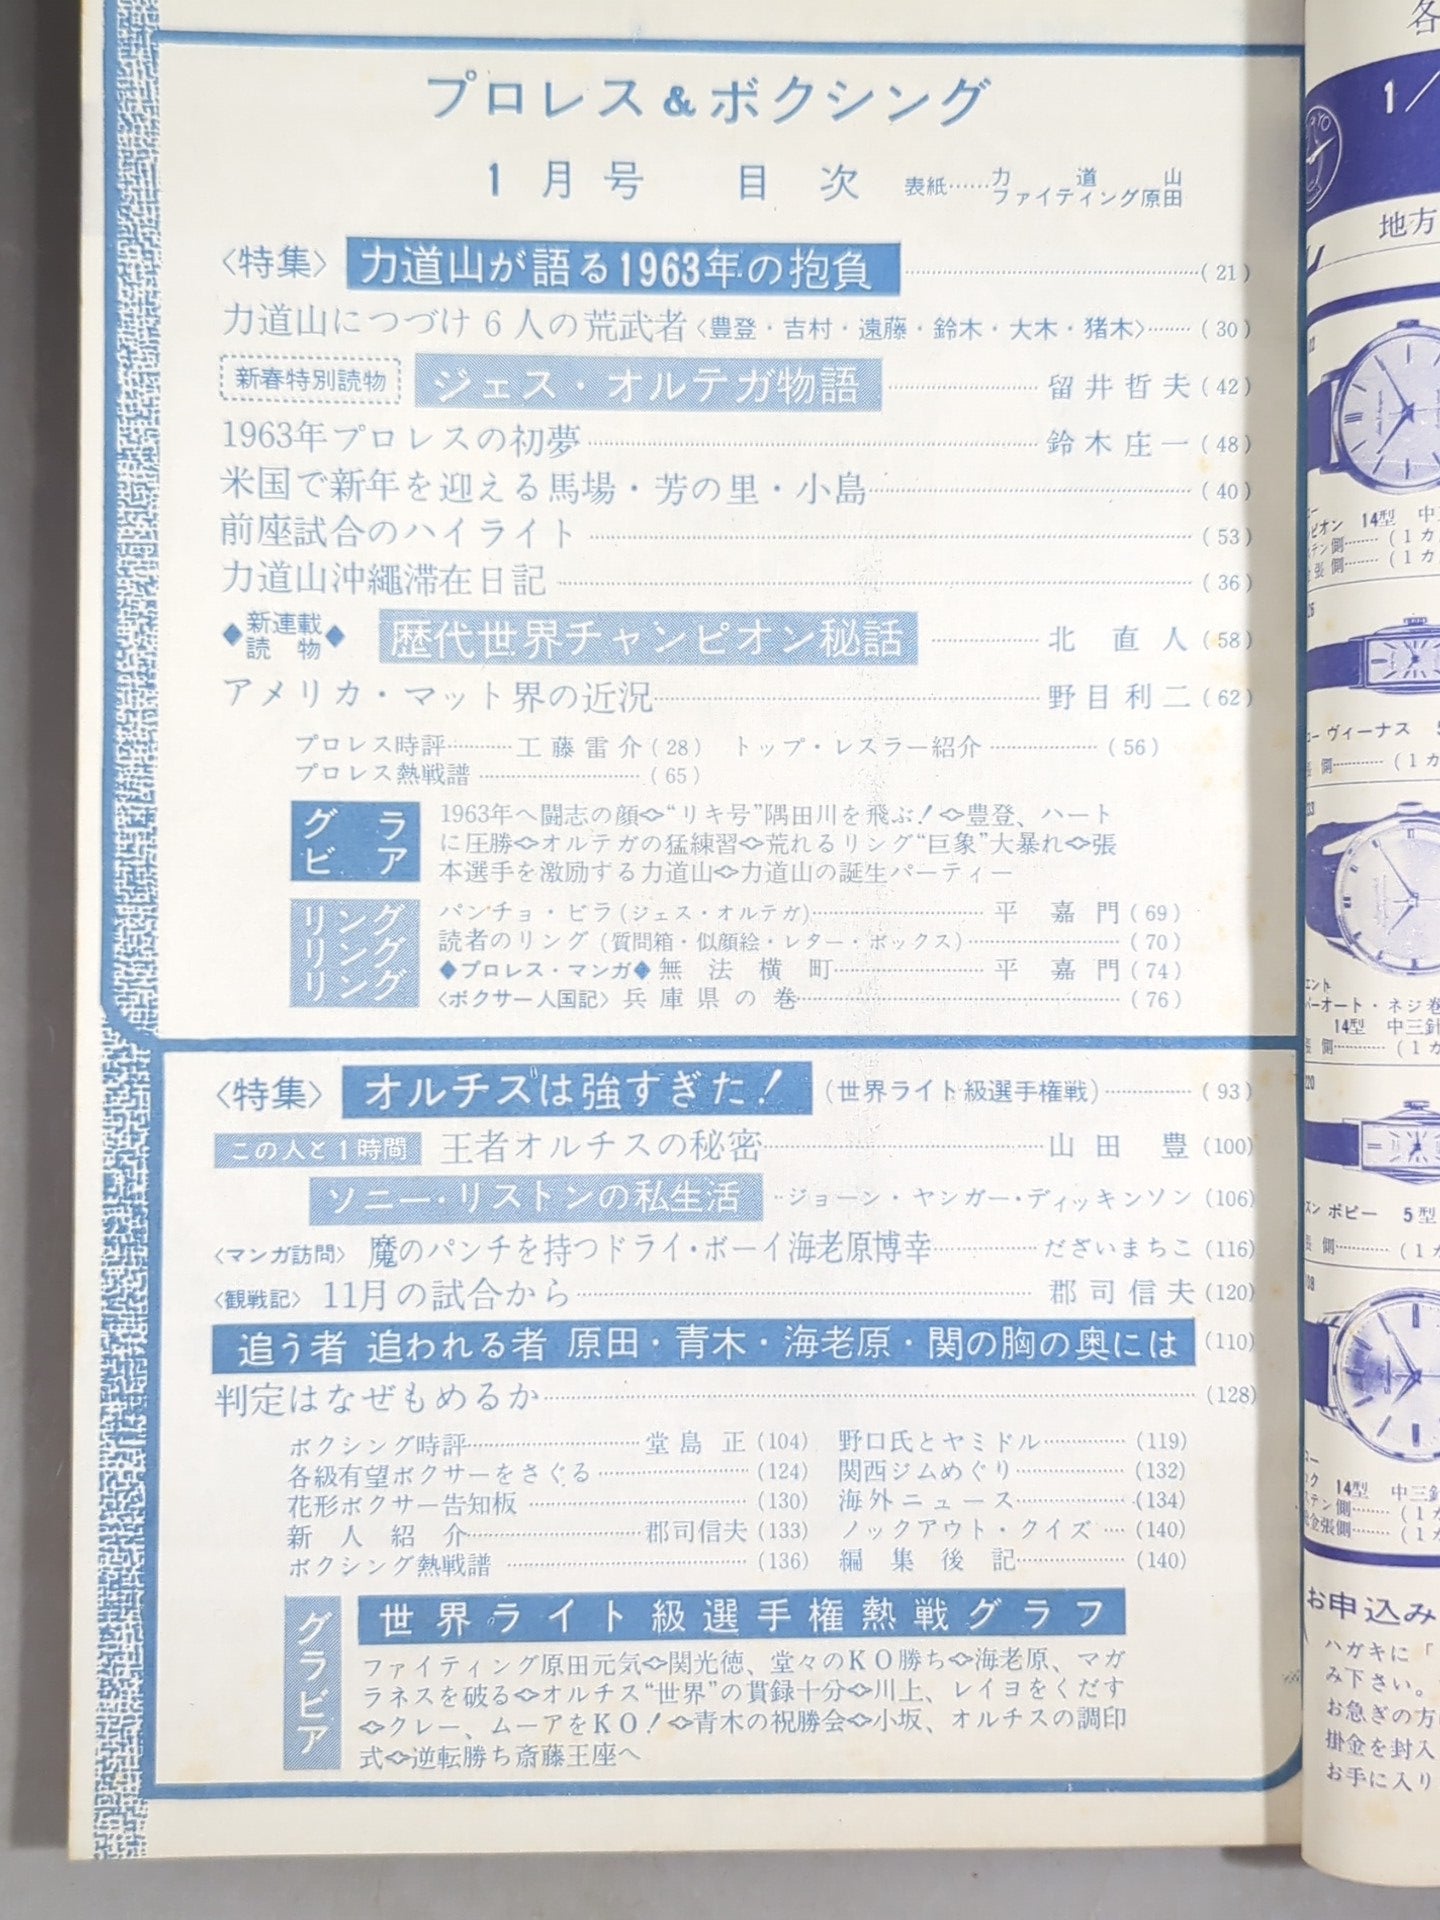 プロレス&ボクシング
1月号 目次 表紙……力道山
ファイティング原田
〈特集〉 力道山が語る1963年の抱負 (21)
力道山につづけ6人の荒武者〈豊登・吉村・遠藤・鈴木・大木・猪木〉 (30)
新春特別読物 ジェス・オルテガ物語 留井哲夫 (42)
1963年プロレスの初夢 鈴木庄一 (48)
米国で新年を迎える馬場・芳の里・小島 (40)
前座試合のハイライト (53)
力道山沖縄滞在日記 (36)
◆新連載読物◆ 歴代世界チャンピオン秘話 北直人 (58)
アメリカ・マット界の近況 野目利二 (62)
プロレス時評 工藤雷介 (28) トップ・レスラー紹介 (56)
プロレス熱戦譜 (65)
グラビア
1963年へ闘志の顔◇“リキ号”隅田川を飛ぶ!◇豊登、ハート
に圧勝◇オルテガの猛練習◇荒れるリング“巨象”大暴れ◇張
本選手を激励する力道山◇力道山の誕生パーティー
リング リング リング
パンチョ・ビラ(ジェス・オルテガ) 平嘉門 (69)
読者のリング(質問箱・似顔絵・レター・ボックス) (70)
◆プロレス・マンガ◆無法横町 平嘉門 (74)
〈ボクサー人国記〉兵庫県の巻 (76)
〈特集〉 オルチズは強すぎた! (世界ライト級選手権戦) (93)
この人と1時間 王者オルチスの秘密 山田豊 (100)
ソニー・リストンの私生活 ジョーン・ヤンガー・ディッキンソン (106)
〈マンガ訪問〉 魔のパンチを持つドライ・ボーイ海老原博幸 だざいまちこ (116)
〈観戦記〉 11月の試合から 郡司信夫 (120)
追う者 追われる者 原田・青木・海老原・関の胸の奥には (110)
判定はなぜもめるか (128)
ボクシング時評 堂島正 (104) 野口氏とヤミドル (119)
各級有望ボクサーをさぐる (124) 関西ジムめぐり (132)
花形ボクサー告知板 (130) 海外ニュース (134)
新人紹介 郡司信夫 (133) ノックアウト・クイズ (140)
ボクシング熱戦譜 (136) 編集後記 (140)
グラビア
世界ライト級選手権熱戦グラフ
ファイティング原田元気◇関光徳、堂々のKO勝ち◇海老原、マガ
ラネスを破る◇オルチス“世界”の貫録十分◇川上、レイヨをくだす
◇クレー、ムーアをKO!◇青木の祝勝会◇小坂、オルチスの調印
式◇逆転勝ち斎藤王座へ
各
1/
地方
14型
ヴィーナス
オート・ネジ巻
14型 中三針
ボビー 5型
14型 中三針
お申込み
ハガキに「
み下さい。
お急ぎの方
掛金を封入
お手に入り